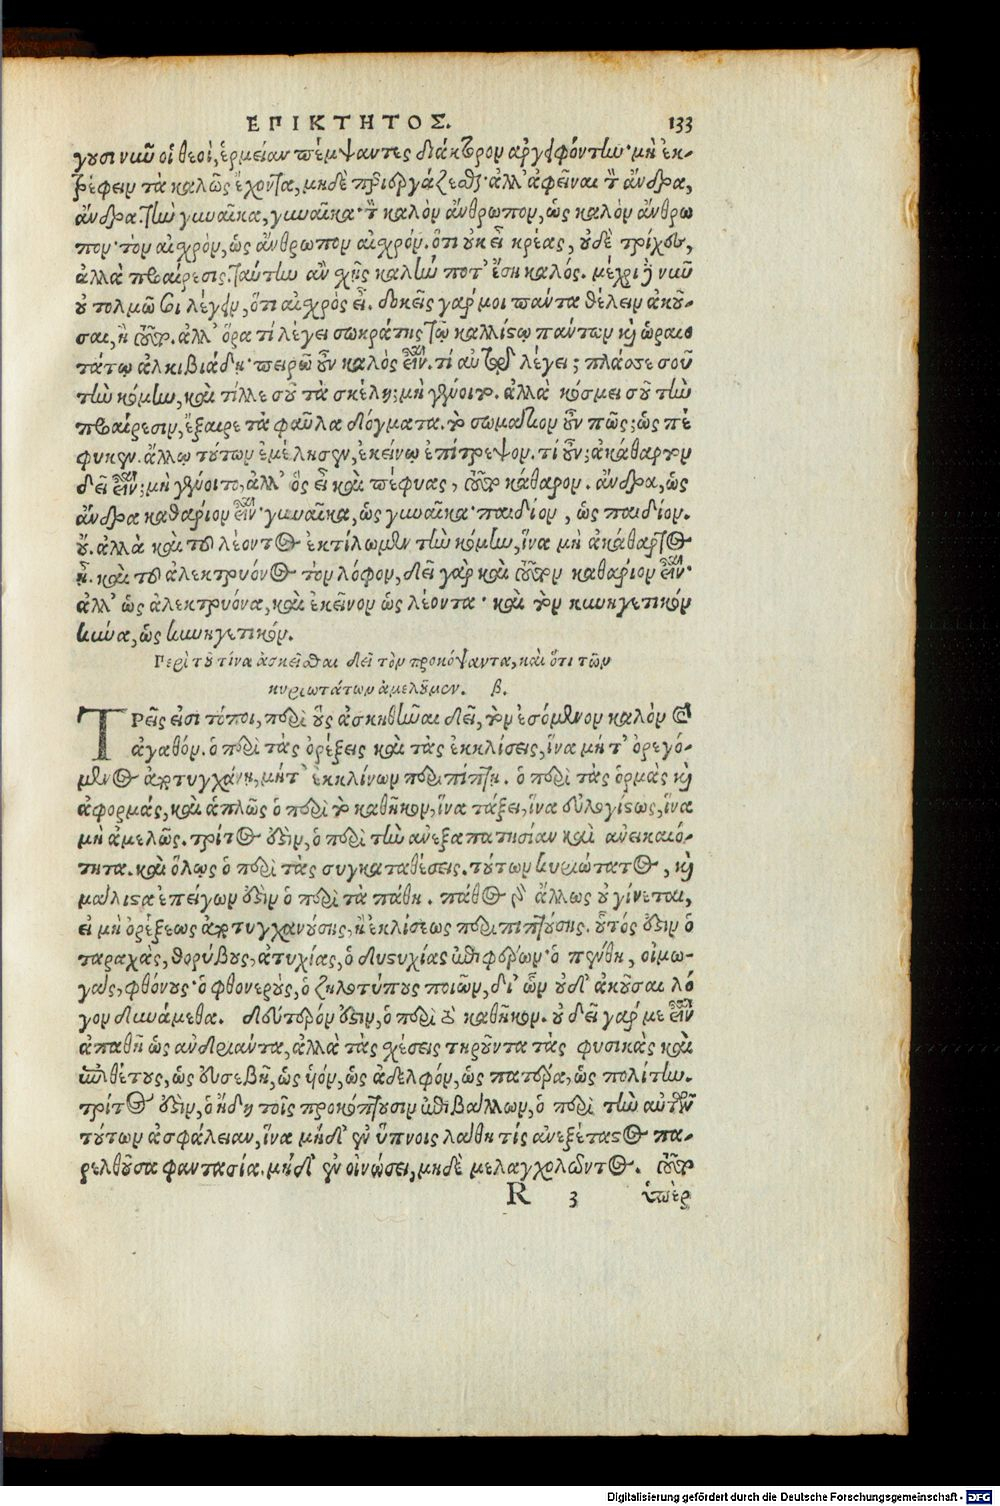 ΕΠΙΚΤΗΤΟΣ. 133
γουσι νῦν οἱ θεοὶ, ἑρμείαν πέμψαντες διάκτορον ἀργειφόντην· μὴ ἐκ-
τρέφειν τὰ καλῶς ἔχοντα, μηδὲ περιεργάζεσθαι· ἀλλ' ἀφεῖναι τὸν ἄνδρα,
ἄνδρα. τὴν γυναῖκα, γυναῖκα· τὸν καλὸν ἄνθρωπον, ὡς καλὸν ἄνθρω
πον· τὸν αἰσχρὸν, ὡς ἄνθρωπον αἰσχρόν. ὅτι οὐκ εἶ κρέας, οὐδὲ τρίχες,
ἀλλὰ προαίρεσις. ταύτην ἂν σχῇς καλὴν ποτ' ἔσῃ καλός. μέχρι δὲ νῦν
οὐ τολμῶ σοι λέγειν, ὅτι αἰσχρὸς εἶ. δοκεῖς γάρ μοι πάντα θέλειν ἀκοῦ-
σαι, ἢ τοῦτο. ἀλλ' ὅρα τί λέγει σωκράτης τῷ καλλίστῳ πάντων καὶ ὡραιο
τάτῳ ἀλκιβιάδῃ· πειρῶ οὖν καλὸς εἶναι. τί αὐτῷ λέγει; πλάσσε σοῦ
τὴν κόμην, καὶ τίλλε σοῦ τὰ σκέλη; μὴ γένοιτο. ἀλλὰ κόσμει σοῦ τὴν
προαίρεσιν, ἔξαιρε τὰ φαῦλα δόγματα. τὸ σωμάτιον οὖν πῶς; ὡς πέ
φυκεν. ἄλλῳ τούτων ἐμέλησεν, ἐκείνῳ ἐπίτρεψον. τί οὖν; ἀκάθαρτον
δεῖ εἶναι; μὴ γένοιτο, ἀλλ' ὃς εἶ καὶ πέφυκας, τοῦτο κάθαρον. ἄνδρα, ὡς
ἄνδρα καθάριον εἶναι· γυναῖκα, ὡς γυναῖκα· παιδίον, ὡς παιδίον.
οὔ. ἀλλὰ καὶ τοῦ λέοντος ἐκτίλωμεν τὴν κόμην, ἵνα μὴ ἀκάθαρτος
ᾖ. καὶ τοῦ ἀλεκτρυόνος τὸν λόφον, δεῖ γὰρ καὶ τοῦτον καθάριον εἶναι·
ἀλλ' ὡς ἀλεκτρυόνα, καὶ ἐκεῖνον ὡς λέοντα· καὶ τὸν κυνηγετικόν
κύνα, ὡς κυνηγετικόν.
Περὶ τοῦ τίνα ἀσκεῖσθαι δεῖ τὸν προκόψαντα, καὶ ὅτι τῶν
κυριωτάτων ἀμελοῦμεν. β.
ΤΡεῖς εἰσι τόποι, περὶ οὓς ἀσκηθῆναι δεῖ, τὸν ἐσόμενον καλὸν καὶ
ἀγαθόν. ὁ περὶ τὰς ὀρέξεις καὶ τὰς ἐκκλίσεις, ἵνα μήτ' ὀρεγό-
μενος ἀποτυγχάνῃ, μήτ' ἐκκλίνων περιπίπτῃ. ὁ περὶ τὰς ὁρμὰς καὶ
ἀφορμάς, καὶ ἁπλῶς ὁ περὶ τὸ καθῆκον, ἵνα τάξει, ἵνα εὐλογίστως, ἵνα
μὴ ἀμελῶς. τρίτος ἐστὶν, ὁ περὶ τὴν ἀνεξαπατησίαν καὶ ἀνεικαιό-
τητα. καὶ ὅλως ὁ περὶ τὰς συγκαταθέσεις. τούτων κυριώτατος, καὶ
μάλιστα ἐπείγων ἐστὶν ὁ περὶ τὰ πάθη. πάθος γὰρ ἄλλως οὐ γίνεται,
εἰ μὴ ὀρέξεως ἀποτυγχανούσης, ἢ ἐκλίσεως περιπιπτούσης. οὗτός ἐστιν ὁ
ταραχὰς, θορύβους, ἀτυχίας, ὁ δυστυχίας ἐπιφέρων· ὁ πένθη, οἰμω-
γὰς, φθόνους· ὁ φθονερὸς, ὁ ζηλοτύπους ποιῶν, δι' ὧν οὐδ' ἀκοῦσαι λό
γον δυνάμεθα. δεύτερόν ἐστιν, ὁ περὶ τὸ καθῆκον. οὐ δεῖ γάρ με εἶναι
ἀπαθῆ ὡς ἀνδριάντα, ἀλλὰ τὰς σχέσεις τηροῦντα τὰς φυσικὰς καὶ
ἐπιθέτους, ὡς εὐσεβῆ, ὡς υἱόν, ὡς ἀδελφόν, ὡς πατέρα, ὡς πολίτην.
τρίτος ἐστὶν, ὁ ἤδη τοῖς προκόπτουσιν ἐπιβάλλων, ὁ περὶ τὴν αὐτῶν
τούτων ἀσφάλειαν, ἵνα μήδ' ἐν ὕπνοις λάθῃ τίς ἀνεξέταστος πα-
ρελθοῦσα φαντασία. μήδ' ἐν οἰνώσει, μηδὲ μελαγχολῶντος. τοῦτο
R 3 ὑπὲρ
Digitalisierung gefördert durch die Deutsche Forschungsgemeinschaft - DFG